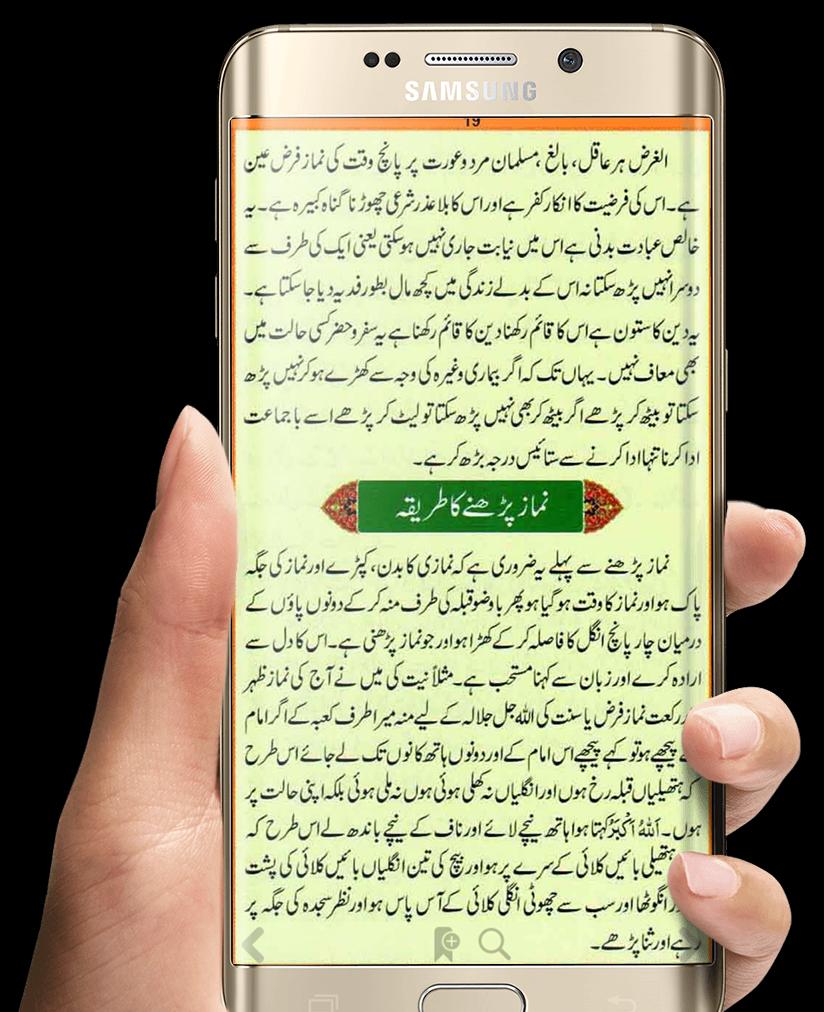 SAMSUNG
19
الغرض ہر عاقل، بالغ، مسلمان مرد و عورت پر پانچ وقت کی نماز فرض عین
ہے۔ اس کی فرضیت کا انکار کفر ہے اور اس کا بلا عذر شرعی چھوڑنا گناہ کبیرہ ہے۔ یہ
خالص عبادت بدنی ہے اس میں نیابت جاری نہیں ہو سکتی یعنی ایک کی طرف سے
دوسرا نہیں پڑھ سکتا نہ اس کے بدلے زندگی میں کچھ مال بطور فدیہ دیا جا سکتا ہے۔
یہ دین کا ستون ہے اس کا قائم رکھنا دین کا قائم رکھنا ہے یہ سفر و حضر کسی حالت میں
بھی معاف نہیں۔ یہاں تک کہ اگر بیماری وغیرہ کی وجہ سے کھڑے ہو کر نہیں پڑھ
سکتا تو بیٹھ کر پڑھے اگر بیٹھ کر بھی نہیں پڑھ سکتا تو لیٹ کر پڑھے اسے با جماعت
ادا کرنا تنہا ادا کرنے سے ستائیس درجہ بڑھ کر ہے۔
نماز پڑھنے کا طریقہ
نماز پڑھنے سے پہلے یہ ضروری ہے کہ نمازی کا بدن، کپڑے اور نماز کی جگہ
پاک ہو اور نماز کا وقت ہو گیا ہو پھر با وضو قبلہ کی طرف منہ کر کے دونوں پاؤں کے
درمیان چار پانچ انگل کا فاصلہ کر کے کھڑا ہو اور جو نماز پڑھنی ہے۔ اس کا دل سے
ارادہ کرے اور زبان سے کہنا مستحب ہے۔ مثلاً نیت کی میں نے آج کی نماز ظہر
رکعت نماز فرض یا سنت کی اللہ جل جلالہ کے لیے منہ میرا طرف کعبہ کے اگر امام
پیچھے ہو تو کہے پیچھے اس امام کے اور دونوں ہاتھ کانوں تک لے جائے اس طرح
کہ ہتھیلیاں قبلہ رخ ہوں اور انگلیاں نہ کھلی ہوئی ہوں نہ ملی ہوئی بلکہ اپنی حالت پر
ہوں۔ اَللّٰہُ اَکْبَرُ کہتا ہوا ہاتھ نیچے لائے اور ناف کے نیچے باندھ لے اس طرح کہ
ہتھیلی بائیں کلائی کے سرے پر ہو اور بیچ کی تین انگلیاں بائیں کلائی کی پشت
انگوٹھا اور سب سے چھوٹی انگلی کلائی کے آس پاس ہو اور نظر سجدہ کی جگہ پر
رہے اور ثنا پڑھے۔